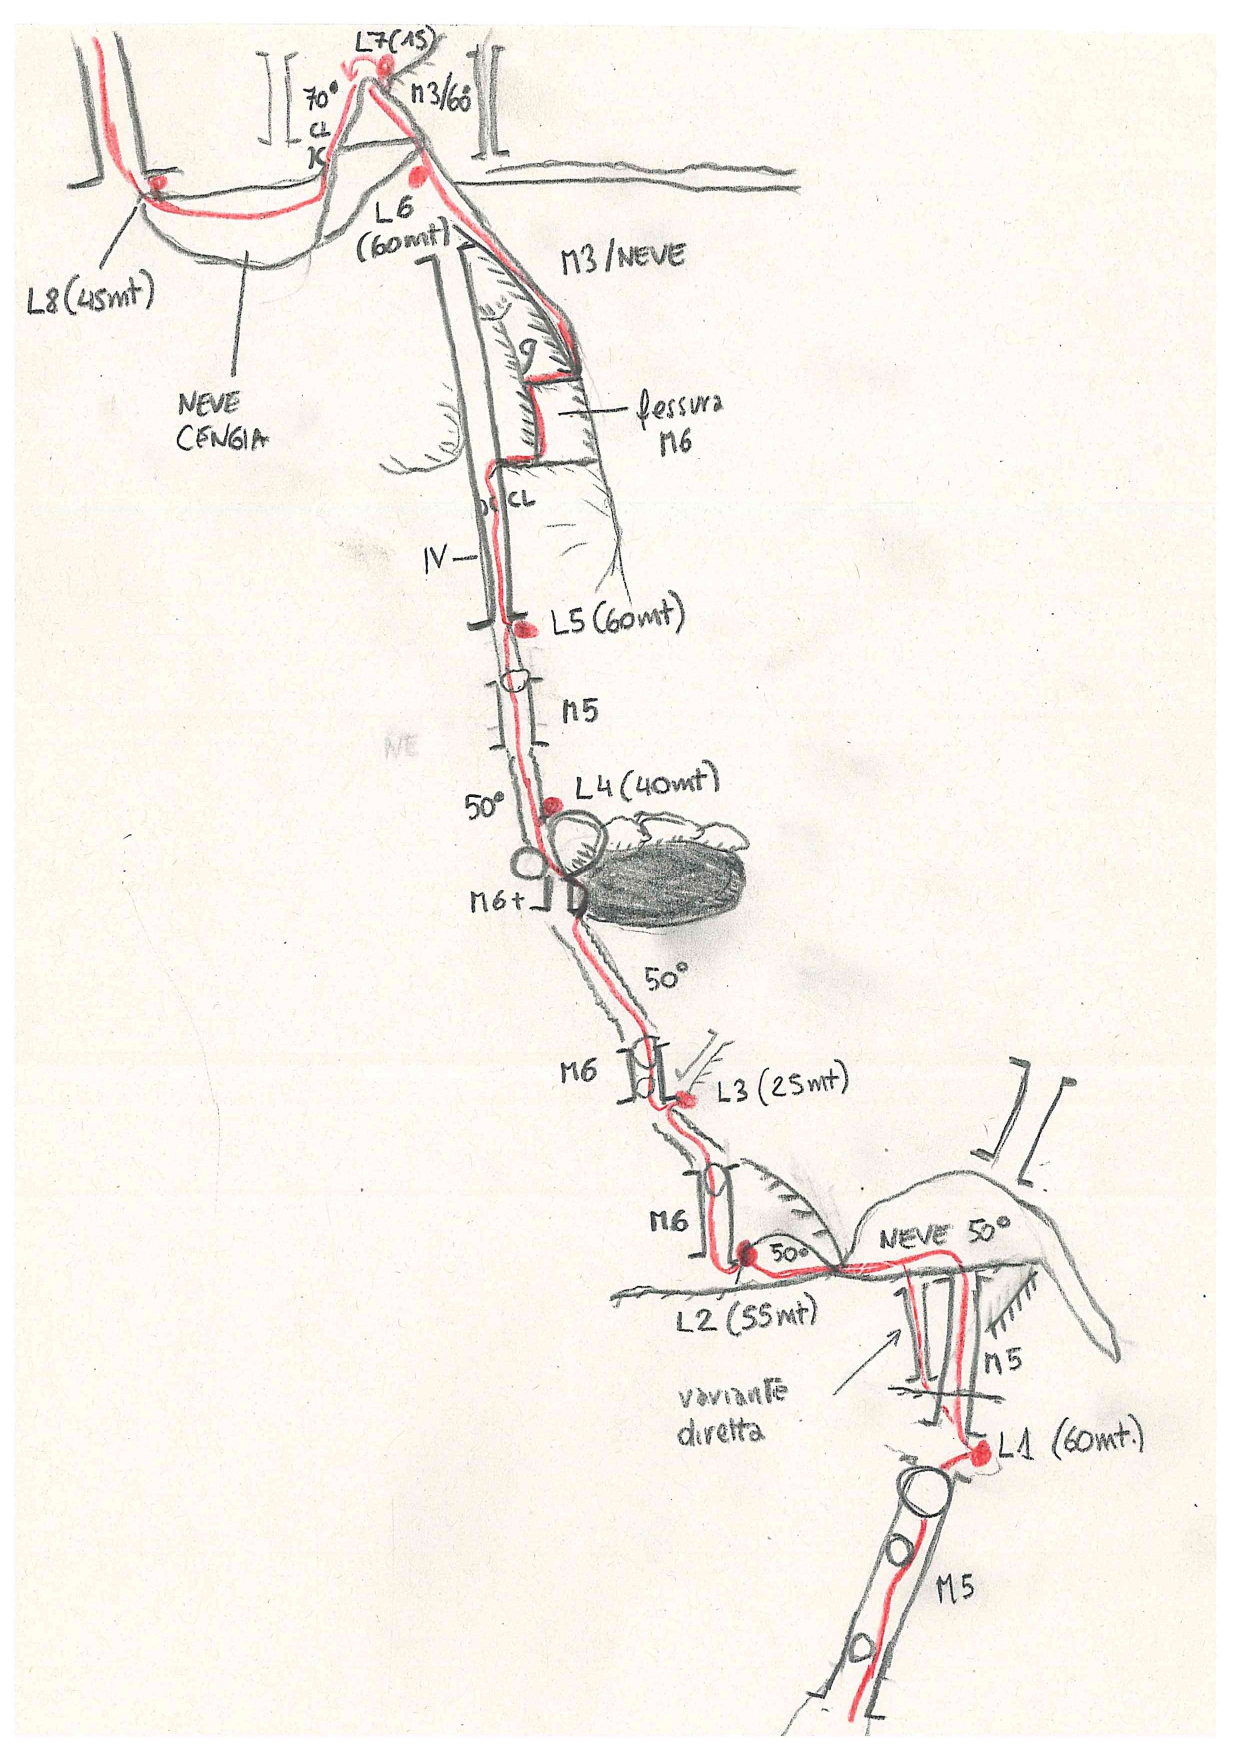 L7(15)
70°
M3/60
CL
L6
(60mt)
M3/NEVE
L8(45mt)
NEVE
CENGIA
fessura
M6
CL
IV
L5(60mt)
M5
NE
L4(40mt)
50°
M6+
50°
M6
L3(25mt)
M6
50°
NEVE 50°
L2(55mt)
M5
variante
diretta
L1 (60mt.)
M5